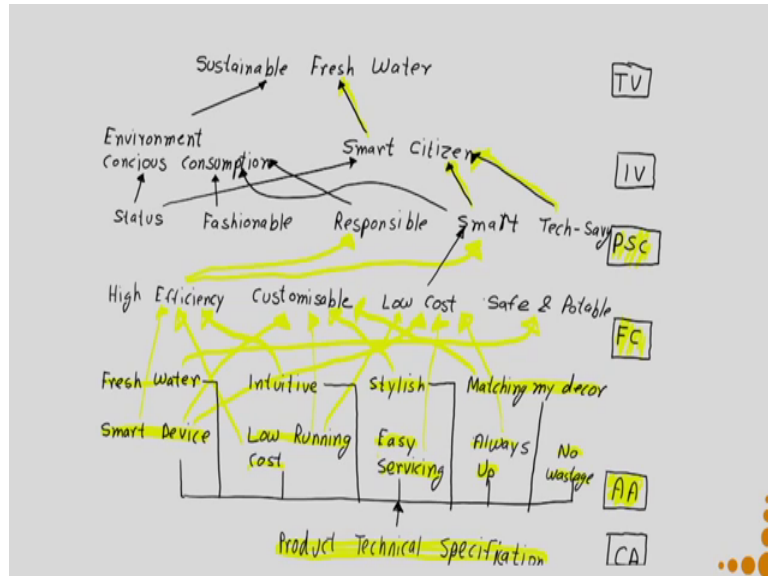 Sustainable Fresh Water
TV
Environment
Concious Consumption
Smart Citizen
IV
Status Fashionable Responsible Smart Tech-Savy
PSC
High Efficiency Customisable Low Cost Safe & Potable
FC
Fresh Water Intuitive Stylish Matching my decor
Smart Device
Low Running
Cost
Easy
Servicing
Always
Up
No
Wastage
AA
Product Technical Specifikation
CA